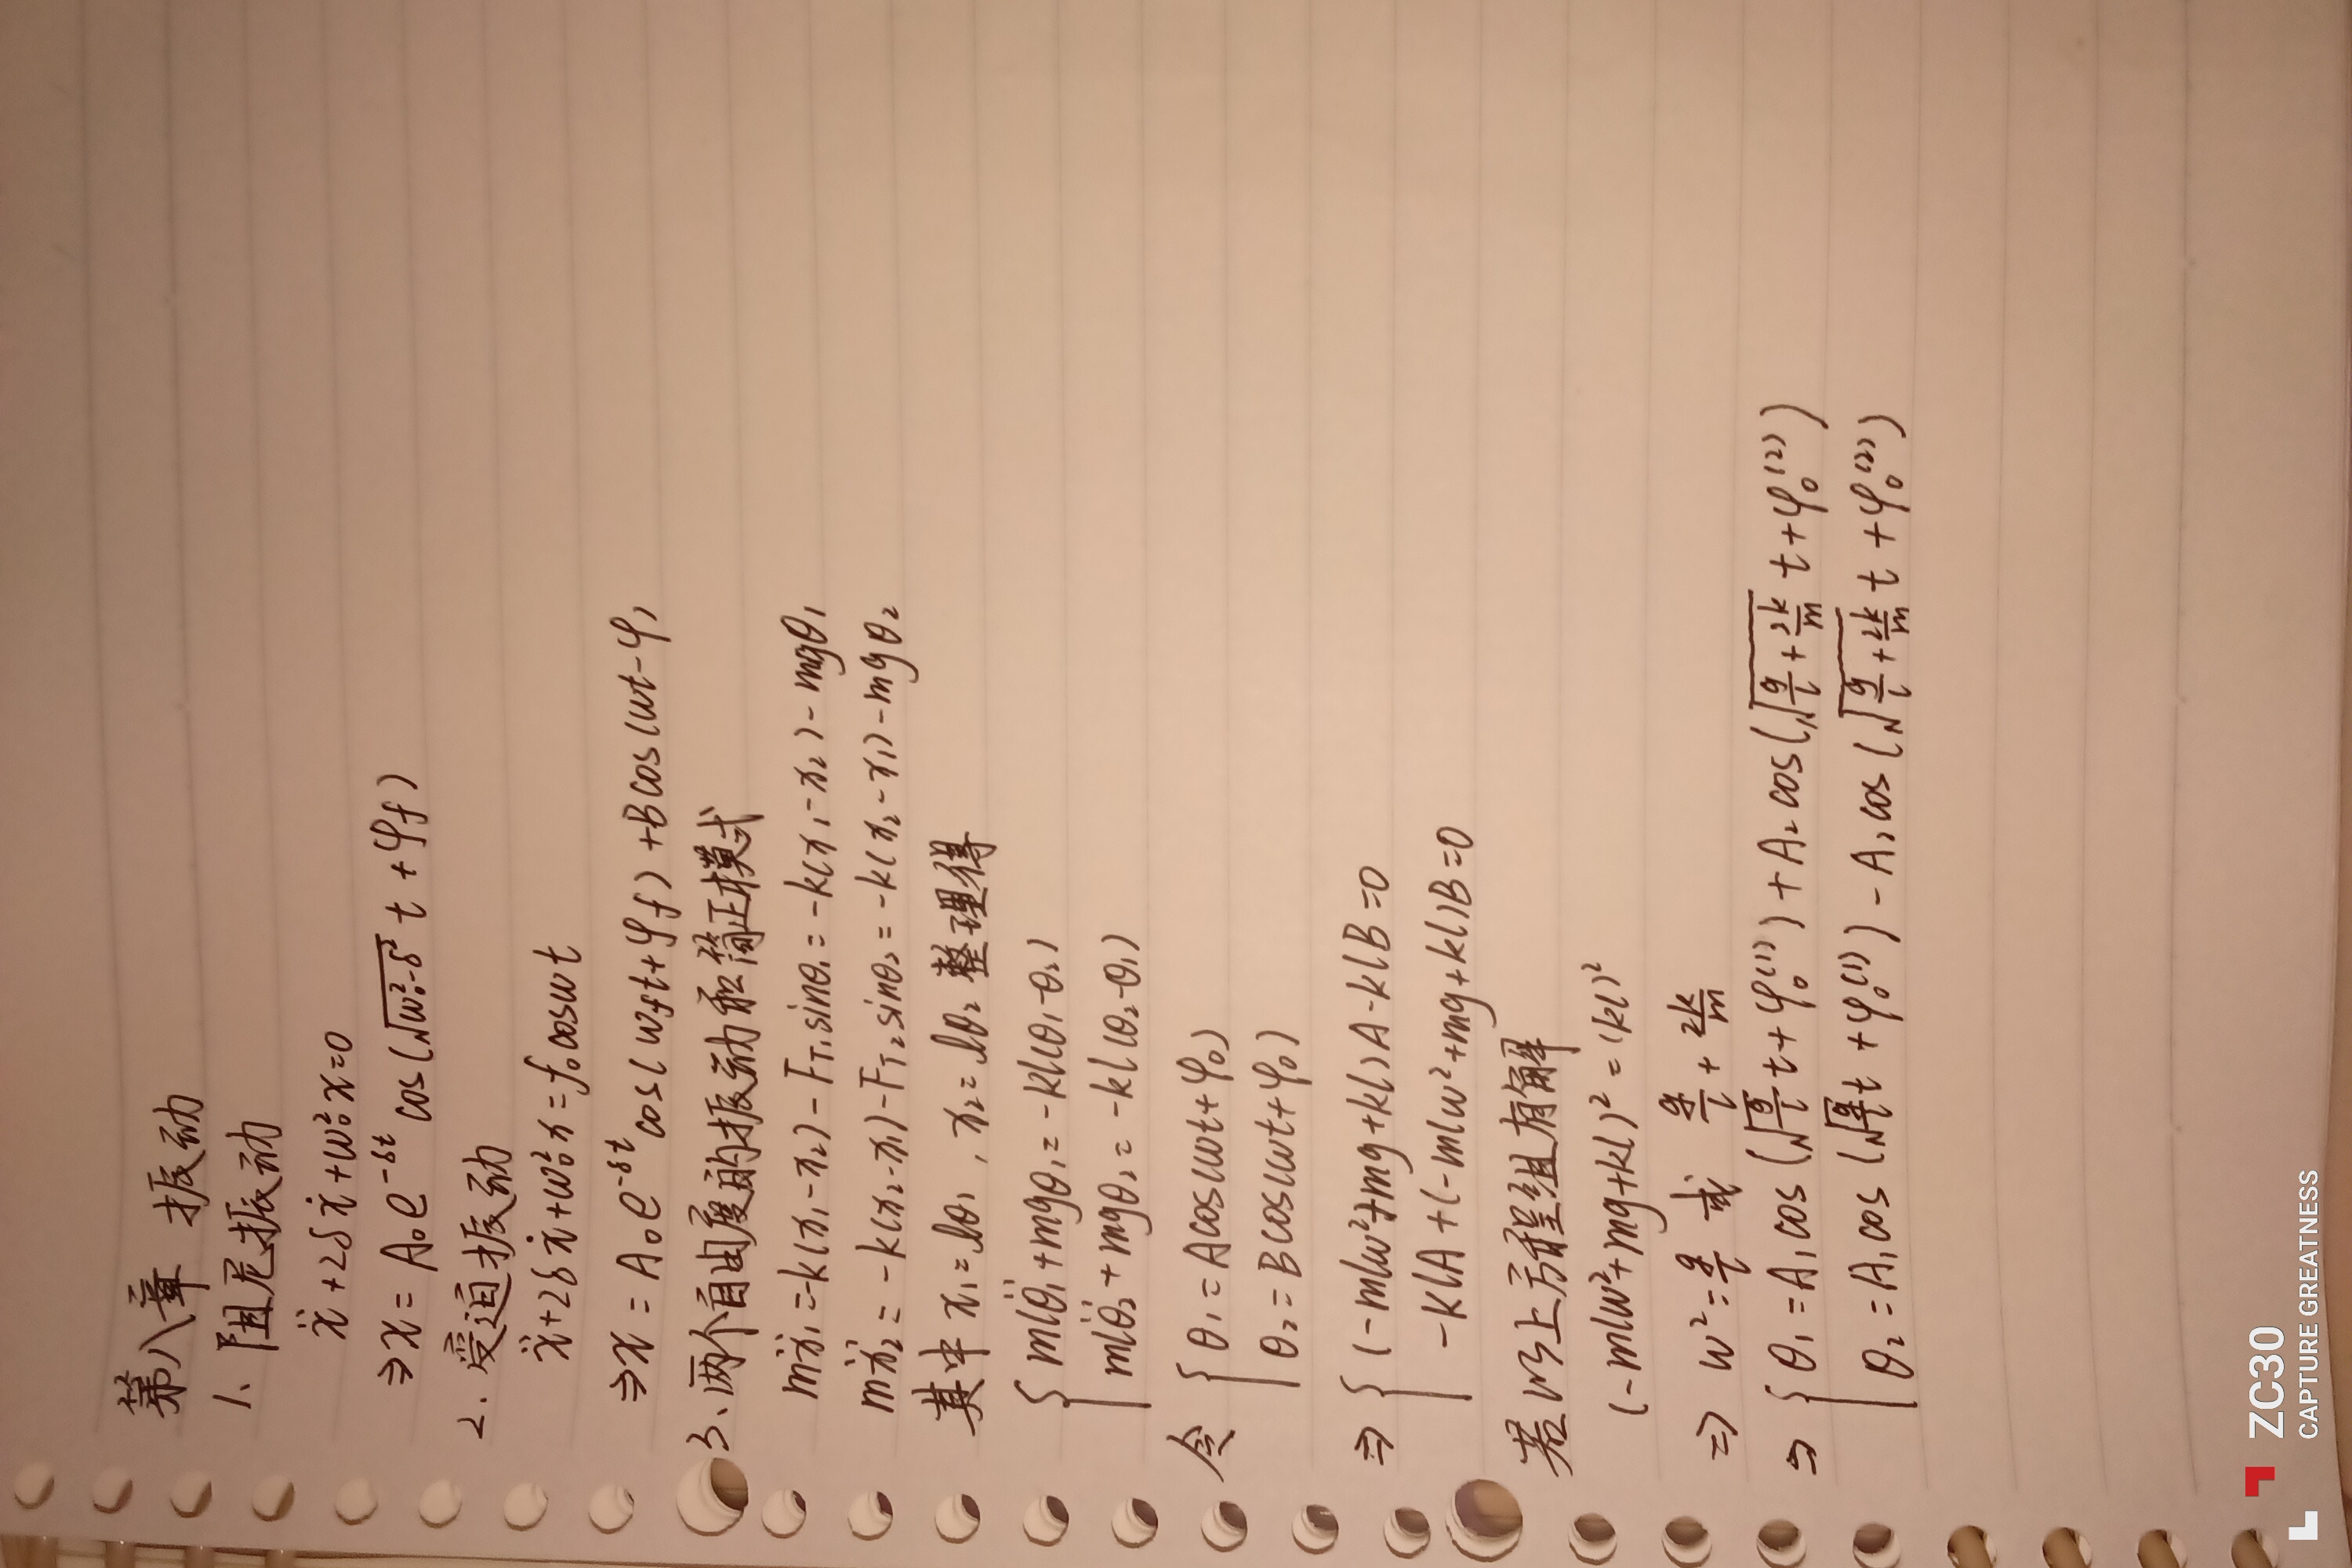 第八章 振动
1、阻尼振动
ẍ+2δẋ+ω₀²x=0
⇒x=A₀e^{-δt}cos(√(ω₀²-δ²) t+φ_f)
2、受迫振动
ẍ+2δẋ+ω₀²x=f₀cosωt
⇒x=A₀e^{-δt}cos(ω_f t+φ_f)+Bcos(ωt-φ)
3、两个自由度的振动和简正模式
mẍ₁=-k(x₁-x₂)-F_{T₁}sinθ₁=-k(x₁-x₂)-mgθ₁
mẍ₂=-k(x₂-x₁)-F_{T₂}sinθ₂=-k(x₂-x₁)-mgθ₂
其中x₁=lθ₁，x₂=lθ₂整理得
{mlθ̈₁+mgθ₁=-kl(θ₁-θ₂)
mlθ̈₂+mgθ₂=-kl(θ₂-θ₁)
令{θ₁=Acos(ωt+φ₀)
θ₂=Bcos(ωt+φ₀)
⇒{(-mlω²+mg+kl)A-klB=0
-klA+(-mlω²+mg+kl)B=0
若以上方程组有解
(-mlω²+mg+kl)²=(kl)²
⇒ω²=g/l 或 g/l+2k/m
⇒{θ₁=A₁cos(√(g/l) t+φ₀⁽¹⁾)+A₂cos(√(g/l+2k/m) t+φ₀⁽²⁾)
θ₂=A₁cos(√(g/l) t+φ₀⁽¹⁾)-A₂cos(√(g/l+2k/m) t+φ₀⁽²⁾)
ZC30
CAPTURE GREATNESS